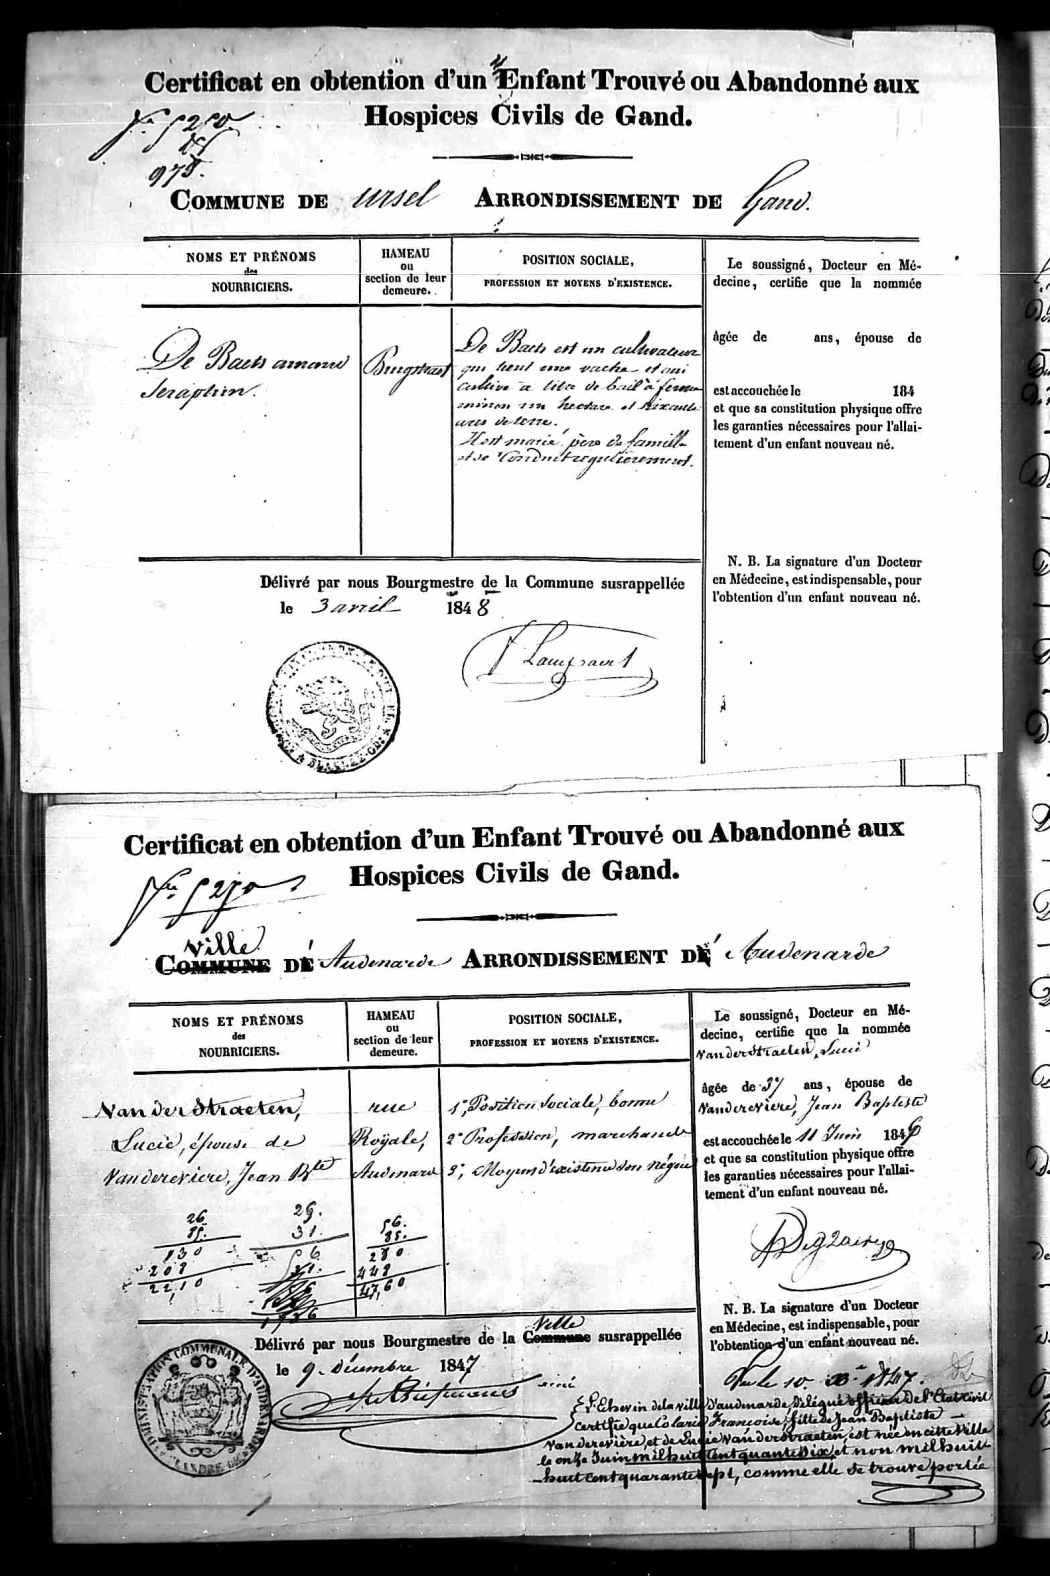 Certificat en obtention d'un Enfant Trouvé ou Abandonné aux
Hospices Civils de Gand.
975.
COMMUNE DE Ursel ARRONDISSEMENT DE Gand.
NOMS ET PRÉNOMS
des
NOURRICIERS.
HAMEAU
ou
section de leur
demeure.
POSITION SOCIALE,
PROFESSION ET MOYENS D'EXISTENCE.
Le soussigné, Docteur en Mé-
decine, certifie que la nommée
âgée de ans, épouse de
est accouchée le 184
et que sa constitution physique offre
les garanties nécessaires pour l'allai-
tement d'un enfant nouveau né.
De Baets amand
Seraphin.
Burgstraet
De Baets est un cultivateur
qui tient une vache et qui
cultive a titre de bail à ferme
un hectare et soixante
ares de terre.
Il est marié père de famille
et se conduit regulièrement.
N. B. La signature d'un Docteur
en Médecine, est indispensable, pour
l'obtention d'un enfant nouveau né.
Délivré par nous Bourgmestre de la Commune susrappellée
le 3 avril 1848
Certificat en obtention d'un Enfant Trouvé ou Abandonné aux
Hospices Civils de Gand.
Ville
COMMUNE D'Audenarde ARRONDISSEMENT D'Audenarde
NOMS ET PRÉNOMS
des
NOURRICIERS.
HAMEAU
ou
section de leur
demeure.
POSITION SOCIALE,
PROFESSION ET MOYENS D'EXISTENCE.
Le soussigné, Docteur en Mé-
decine, certifie que la nommée
Vanderstraeten, Lucie
âgée de 37 ans, épouse de
Vanderevière, Jean Baptiste
est accouchée le 11 Juin 1846
et que sa constitution physique offre
les garanties nécessaires pour l'allai-
tement d'un enfant nouveau né.
Van der Straeten,
Lucie, épouse de
Vanderevière, Jean Bte
rue
Royale,
Audenard
1°, Position sociale, bonne
2° Profession, marchande
3°, Moyens d'existence son négoce
26.
85.
130
208
22,10
29.
31.
56.
85.
280
448
47,60
N. B. La signature d'un Docteur
en Médecine, est indispensable, pour
l'obtention d'un enfant nouveau né.
Délivré par nous Bourgmestre de la Commune susrappellée
Ville
le 9 décembre 1847
ADMINISTRATION COMMUNALE D'AUDENARDE
Vu le 10 1847.
L'Echevin de la ville d'audenarde délégué officier de l'Etat Civil
certifie que Françoise, fille de Jean Baptiste
Vanderevière, et de Lucie Vanderstraeten, est née en cette Ville
le onze Juin mil huit cent quarante six, et non mil huit
huit cent quarante sept, comme elle se trouve portée